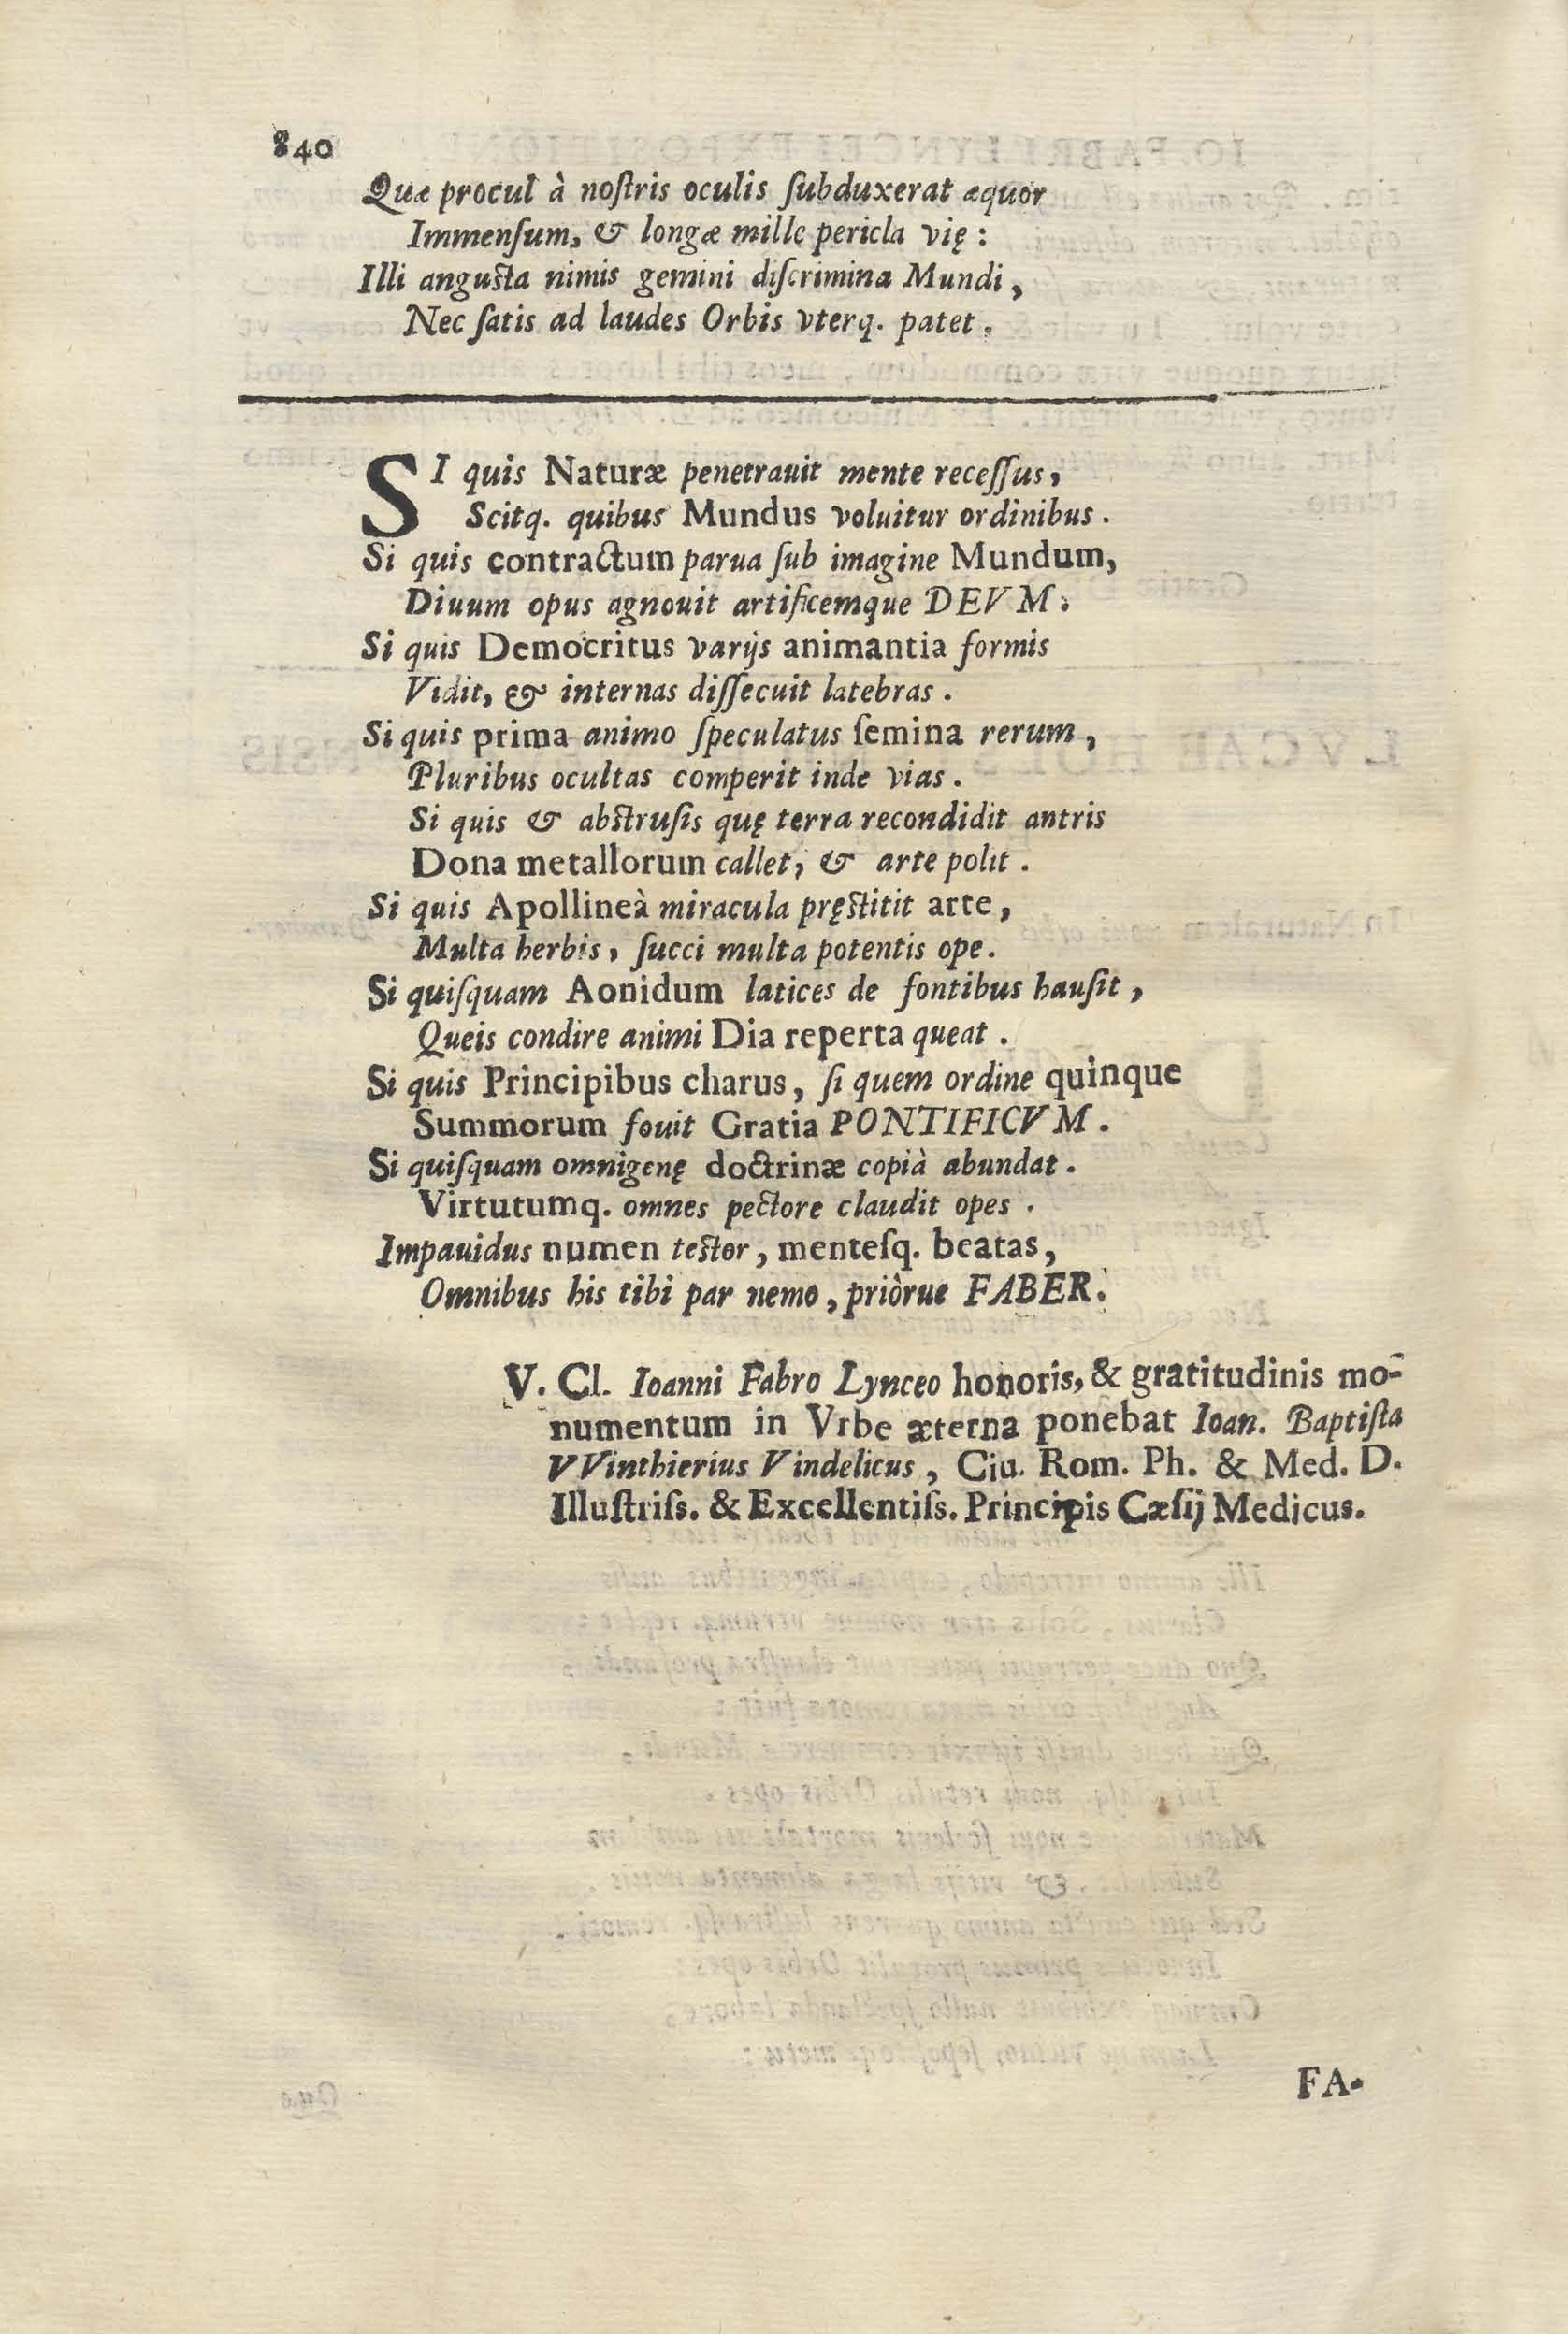 840
Quæ procul à noſtris oculis ſubduxerat æquor
Immenſum, & longæ mille pericla vię :
Illi anguſta nimis gemini diſcrimina Mundi ,
Nec ſatis ad laudes Orbis vterq. patet .
SI quis Naturæ penetrauit mente receſſus ,
Scitq. quibus Mundus voluitur ordinibus .
Si quis contractum parua ſub imagine Mundum,
Diuum opus agnouit artificemque DEVM .
Si quis Democritus varijs animantia formis
Vidit, & internas diſſecuit latebras .
Si quis prima animo ſpeculatus ſemina rerum ,
Pluribus ocultas comperit inde vias .
Si quis & abſtruſis quę terra recondidit antris
Dona metallorum callet, & arte polit .
Si quis Apollineà miracula pręſtitit arte ,
Multa herbis , ſucci multa potentis ope .
Si quiſquam Aonidum latices de fontibus hauſit ,
Queis condire animi Dia reperta queat .
Si quis Principibus charus, ſi quem ordine quinque
Summorum fouit Gratia PONTIFICVM .
Si quiſquam omnigenę doctrinæ copià abundat .
Virtutumq. omnes pectore claudit opes .
Impauidus numen teſtor , menteſq. beatas,
Omnibus his tibi par nemo , priòrue FABER.
V. Cl. Ioanni Fabro Lynceo honoris, & gratitudinis mo-
numentum in Vrbe æterna ponebat Ioan. Baptiſta
VVinthierius Vindelicus , Ciu. Rom. Ph. & Med. D.
Illuſtriſs. & Excellentiſs. Principis Cæſij Medicus.
FA-